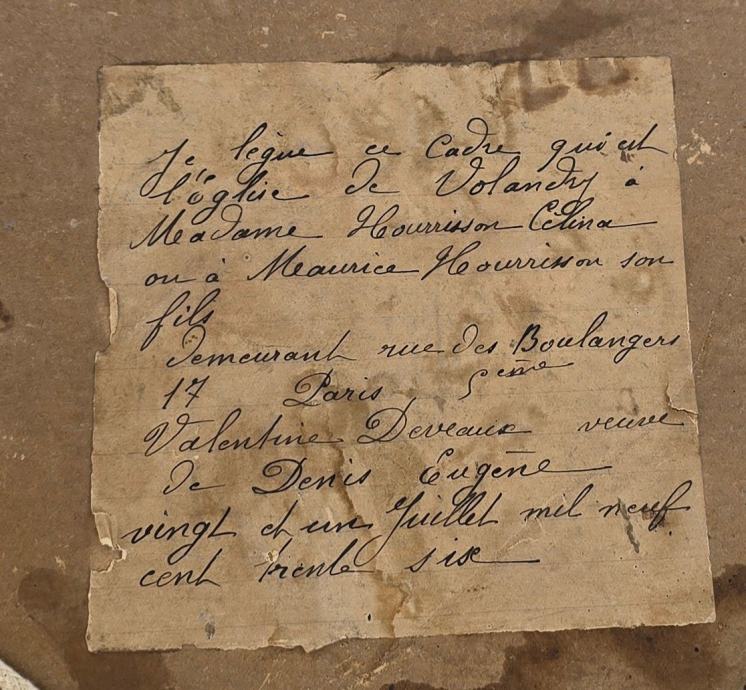 Je lègue ce cadre qui est
l'église de Volandry à
Madame Hourrisson Célina
ou à Maurice Hourrisson son
fils
demeurant rue des Boulangers
17 Paris 5ème
Valentine Deveaux veuve
de Denis Eugène
vingt et un Juillet mil neuf
cent trente six